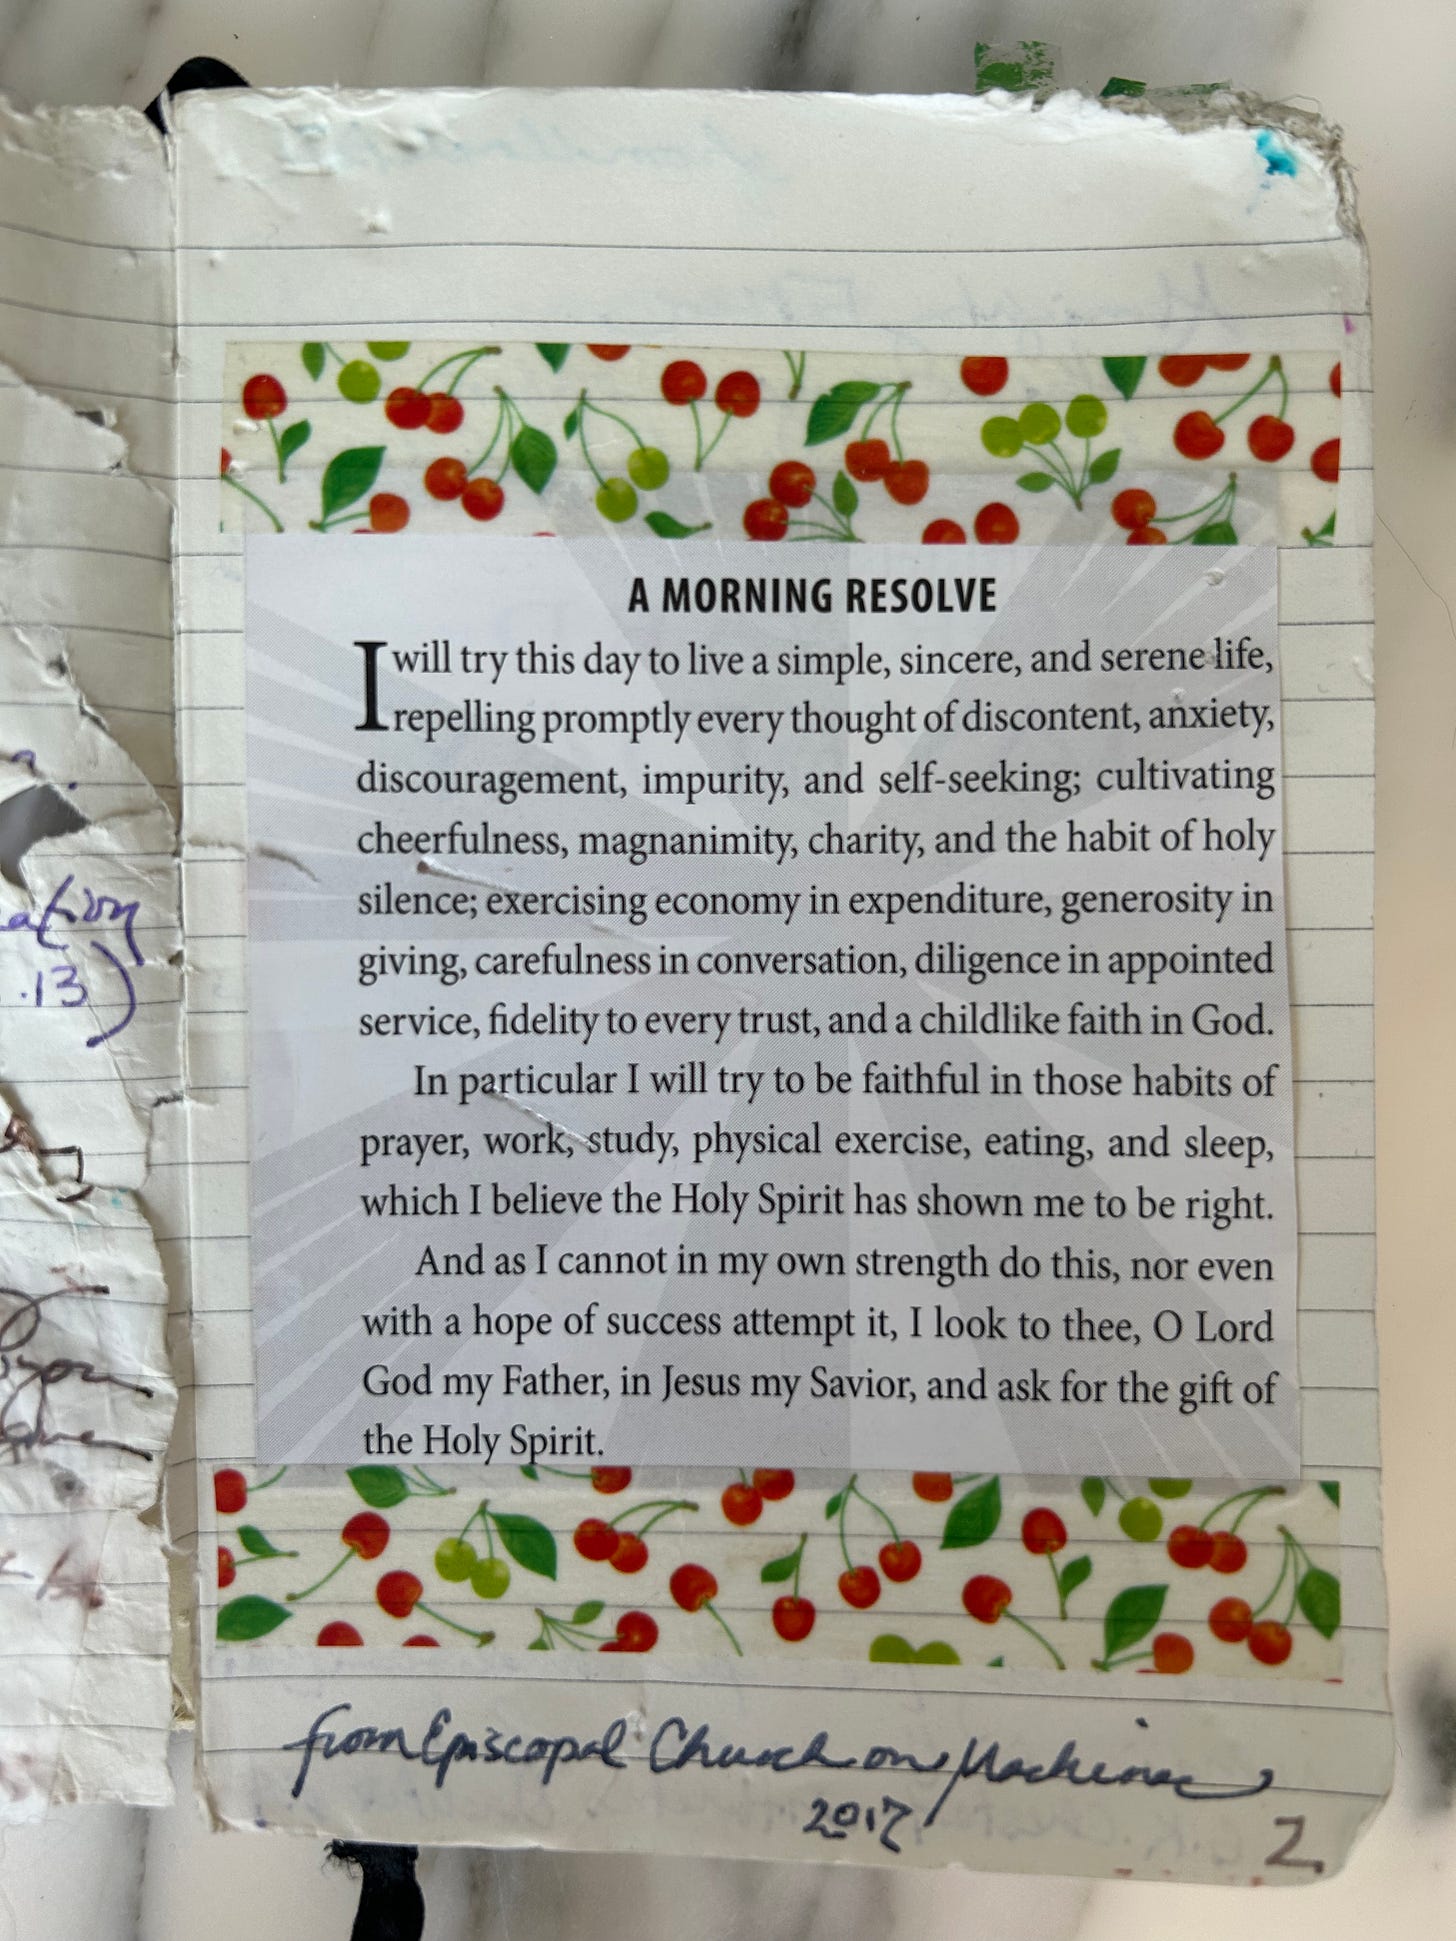 A MORNING RESOLVE
I will try this day to live a simple, sincere, and serene life,
repelling promptly every thought of discontent, anxiety,
discouragement, impurity, and self-seeking; cultivating
cheerfulness, magnanimity, charity, and the habit of holy
silence; exercising economy in expenditure, generosity in
giving, carefulness in conversation, diligence in appointed
service, fidelity to every trust, and a childlike faith in God.
In particular I will try to be faithful in those habits of
prayer, work, study, physical exercise, eating, and sleep,
which I believe the Holy Spirit has shown me to be right.
And as I cannot in my own strength do this, nor even
with a hope of success attempt it, I look to thee, O Lord
God my Father, in Jesus my Savior, and ask for the gift of
the Holy Spirit.
from Episcopal Church on Mackinac
2017
2.
ation
.13)